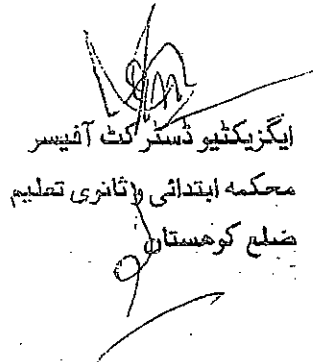 ایگزیکٹیو ڈسٹرکٹ آفیسر
محکمہ ابتدائی و ثانوی تعلیم
ضلع کوھستان